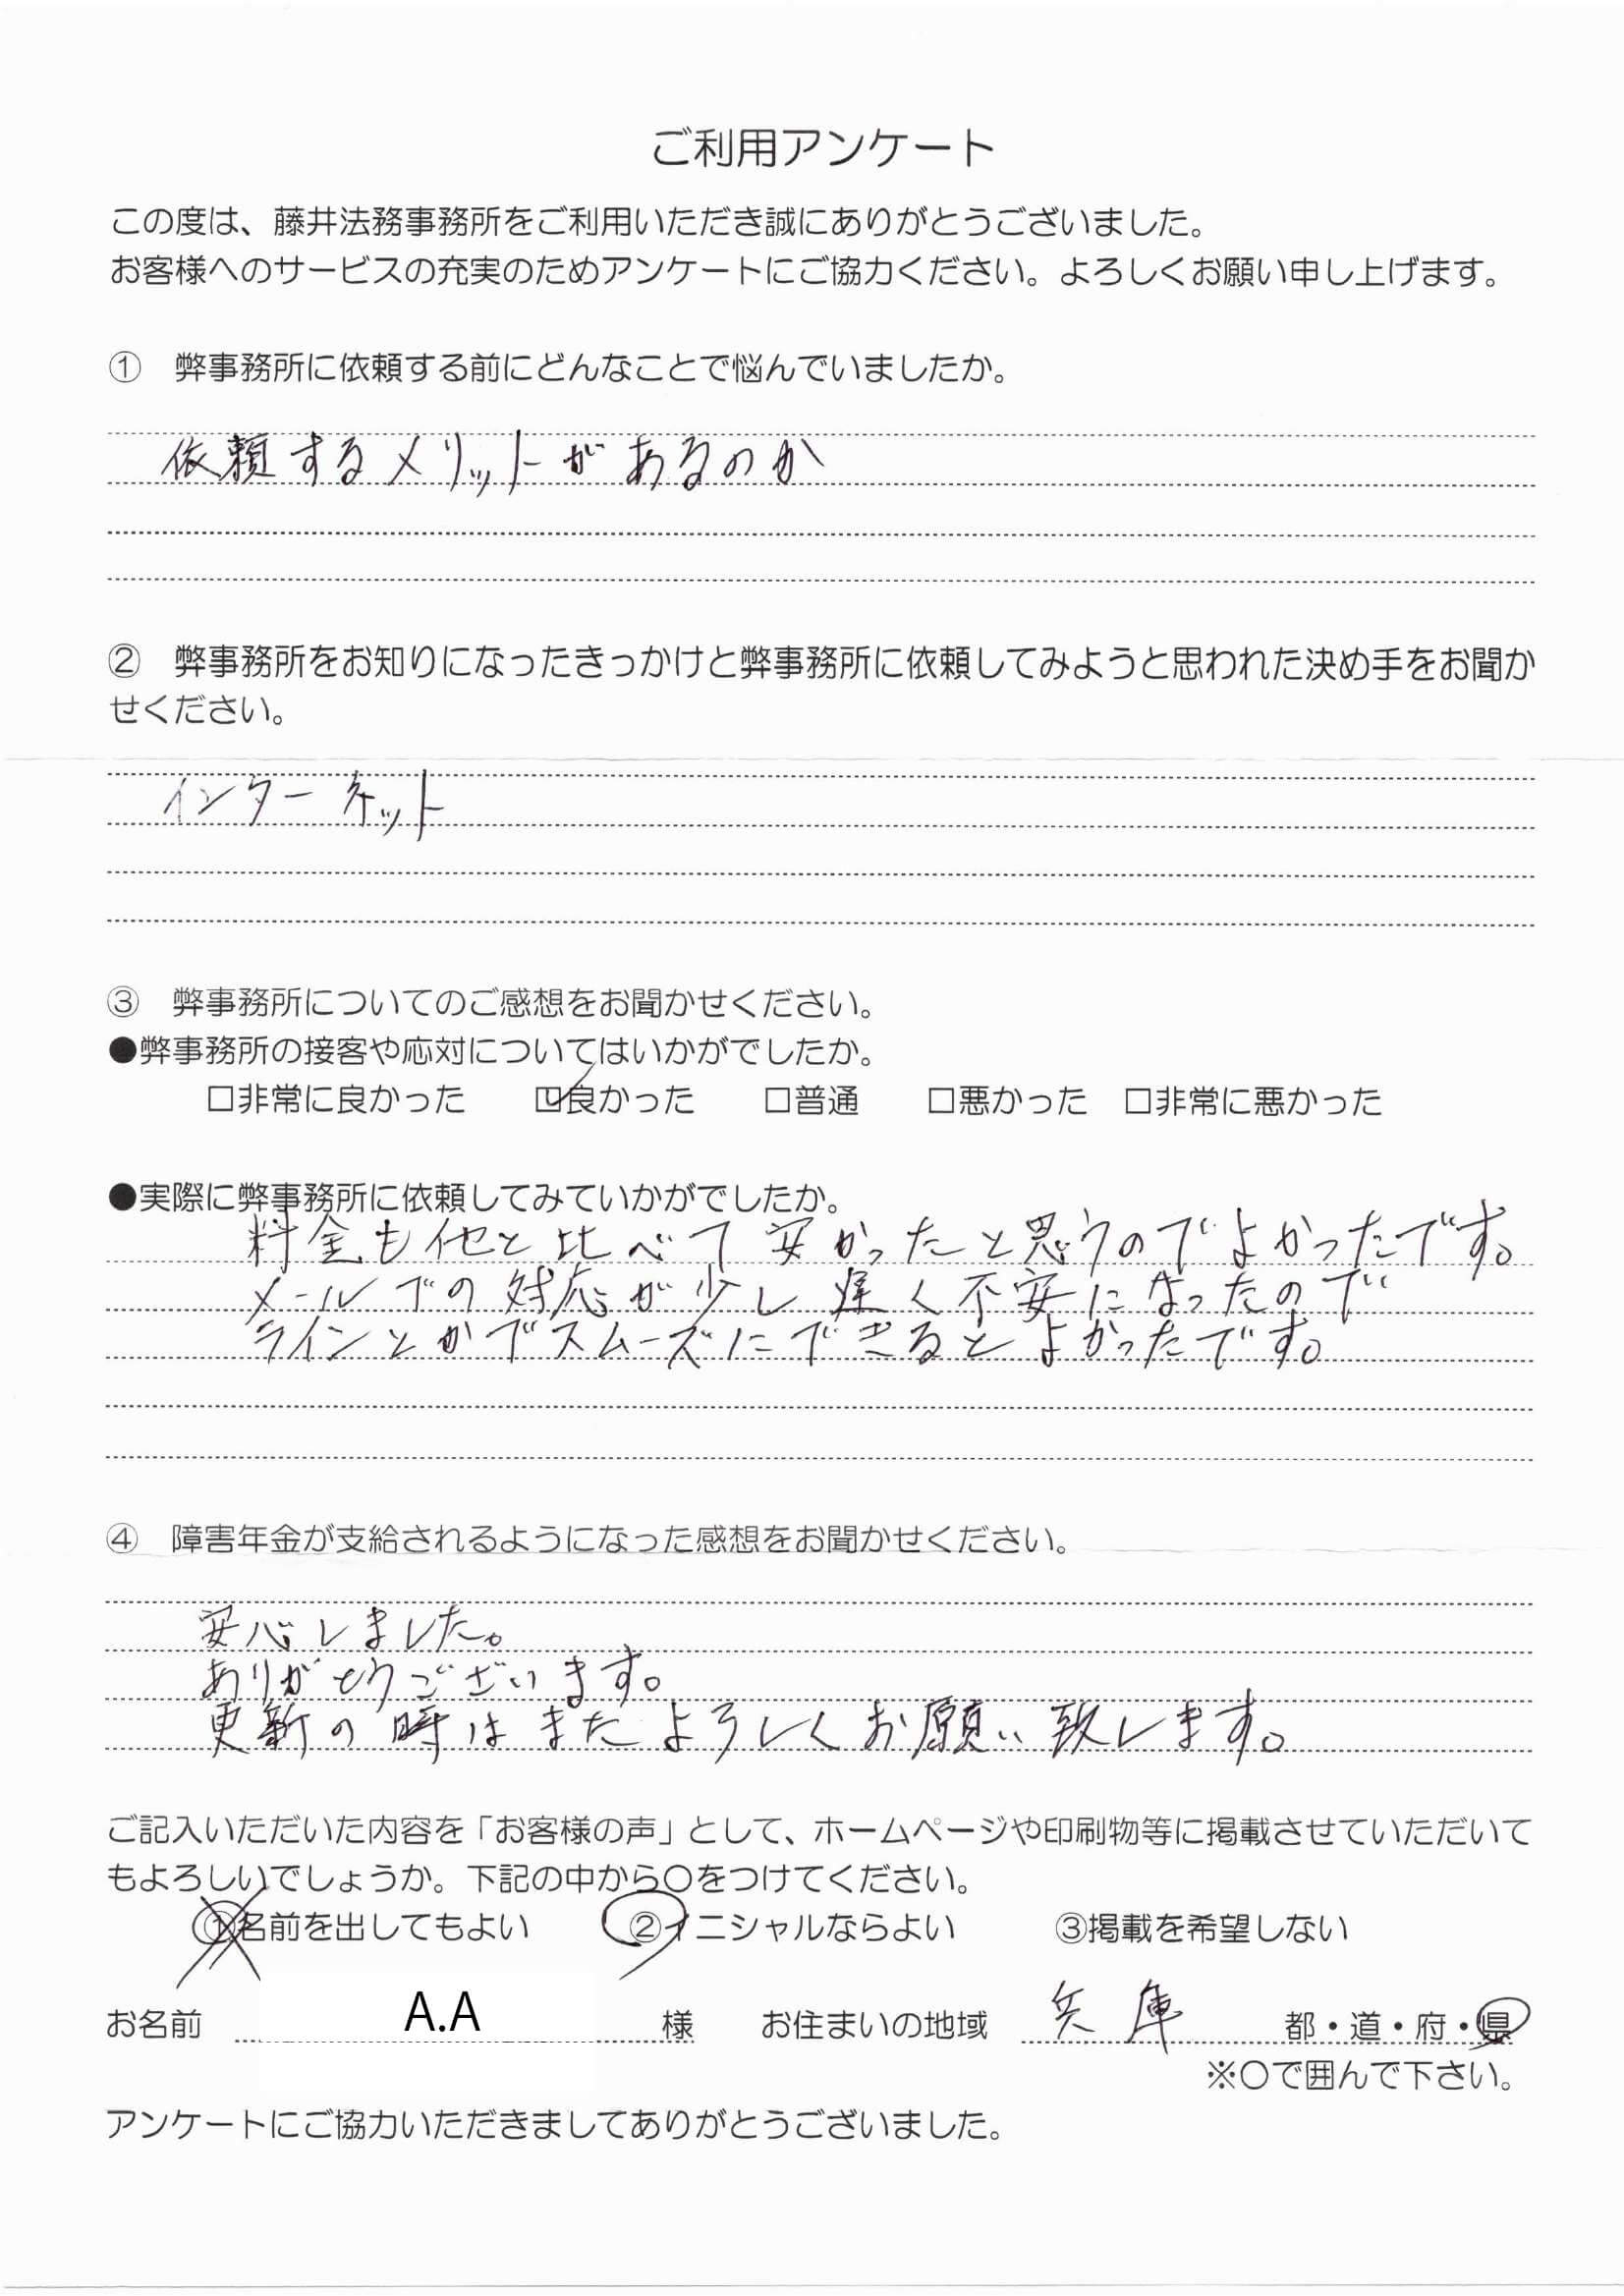 ご利用アンケート
この度は、藤井法務事務所をご利用いただき誠にありがとうございました。
お客様へのサービスの充実のためアンケートにご協力ください。よろしくお願い申し上げます。
① 弊事務所に依頼する前にどんなことで悩んでいましたか。
依頼するメリットがあるのか
② 弊事務所をお知りになったきっかけと弊事務所に依頼してみようと思われた決め手をお聞か
せください。
インターネット
③ 弊事務所についてのご感想をお聞かせください。
●弊事務所の接客や応対についてはいかがでしたか。
□非常に良かった ☑良かった □普通 □悪かった □非常に悪かった
●実際に弊事務所に依頼してみていかがでしたか。
料金も他と比べて安かったと思うのでよかったです。
メールでの対応が少し遅く不安になったので
ラインとかでスムーズにできるとよかったです。
④ 障害年金が支給されるようになった感想をお聞かせください。
安心しました。
ありがとうございます。
更新の時はまたよろしくお願い致します。
ご記入いただいた内容を「お客様の声」として、ホームページや印刷物等に掲載させていただいて
もよろしいでしょうか。下記の中から〇をつけてください。
①名前を出してもよい ②イニシャルならよい ③掲載を希望しない
お名前 A.A 様 お住まいの地域 兵庫 都・道・府・県
※〇で囲んで下さい。
アンケートにご協力いただきましてありがとうございました。